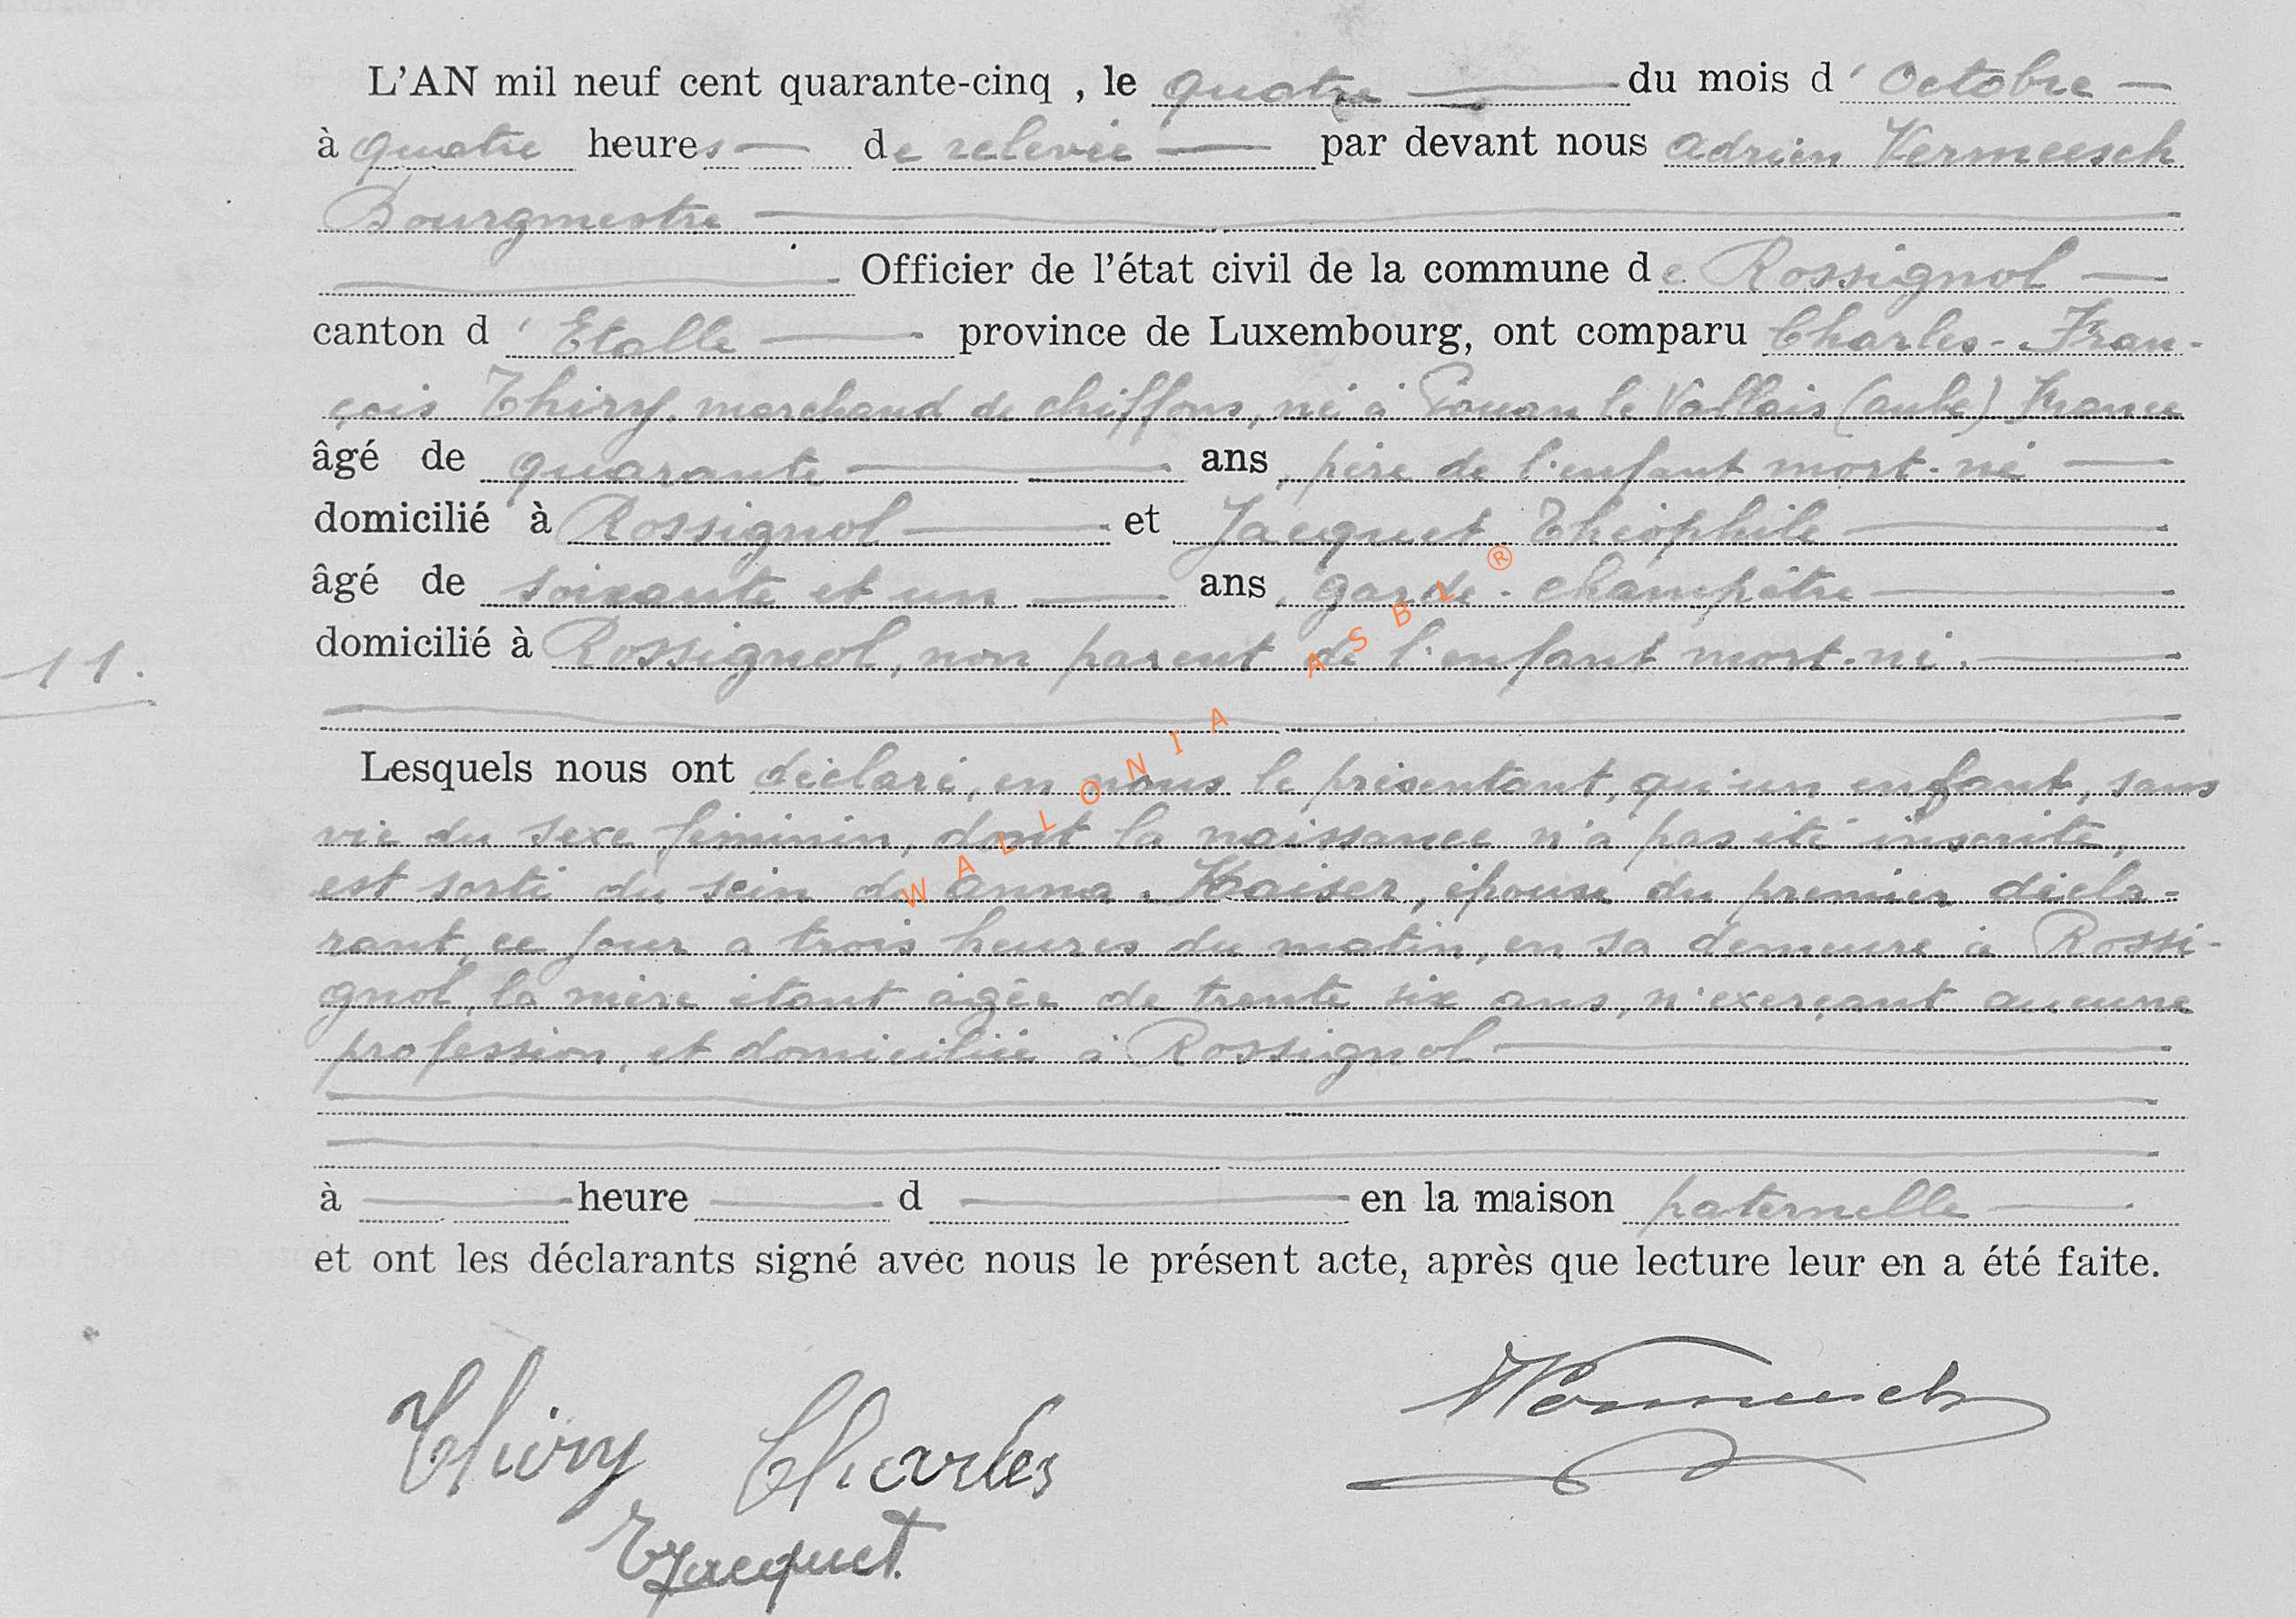 L'AN mil neuf cent quarante-cinq , le quatre du mois d' Octobre
à quatre heures de relevée par devant nous Adrien Vermeesch
Bourgmestre
Officier de l'état civil de la commune de Rossignol
canton d' Etalle province de Luxembourg, ont comparu Charles-Fran-
çois Thiry, marchand de chiffons, né à le Vallais (aube) France
âgé de quarante ans, père de l'enfant mort-né
domicilié à Rossignol et Jacquet Théophile
âgé de soixante et un ans, garde-champêtre
domicilié à Rossignol, non parent de l'enfant mort-né.
11.
Lesquels nous ont déclaré, en nous le présentant, qu'un enfant, sans
vie du sexe féminin, dont la naissance n'a pas été inscrite,
est sorti du sein de Anna Kaiser, épouse du premier décla-
rant, ce jour a trois heures du matin, en sa demeure à Rossi-
gnol, la mère étant âgée de trente six ans, n'exerçant aucune
profession, et domiciliée à Rossignol
à heure d en la maison paternelle
et ont les déclarants signé avec nous le présent acte, après que lecture leur en a été faite.
Thiry Charles
Vermeesch
TJacquet.
WALLONIA ASBL ®